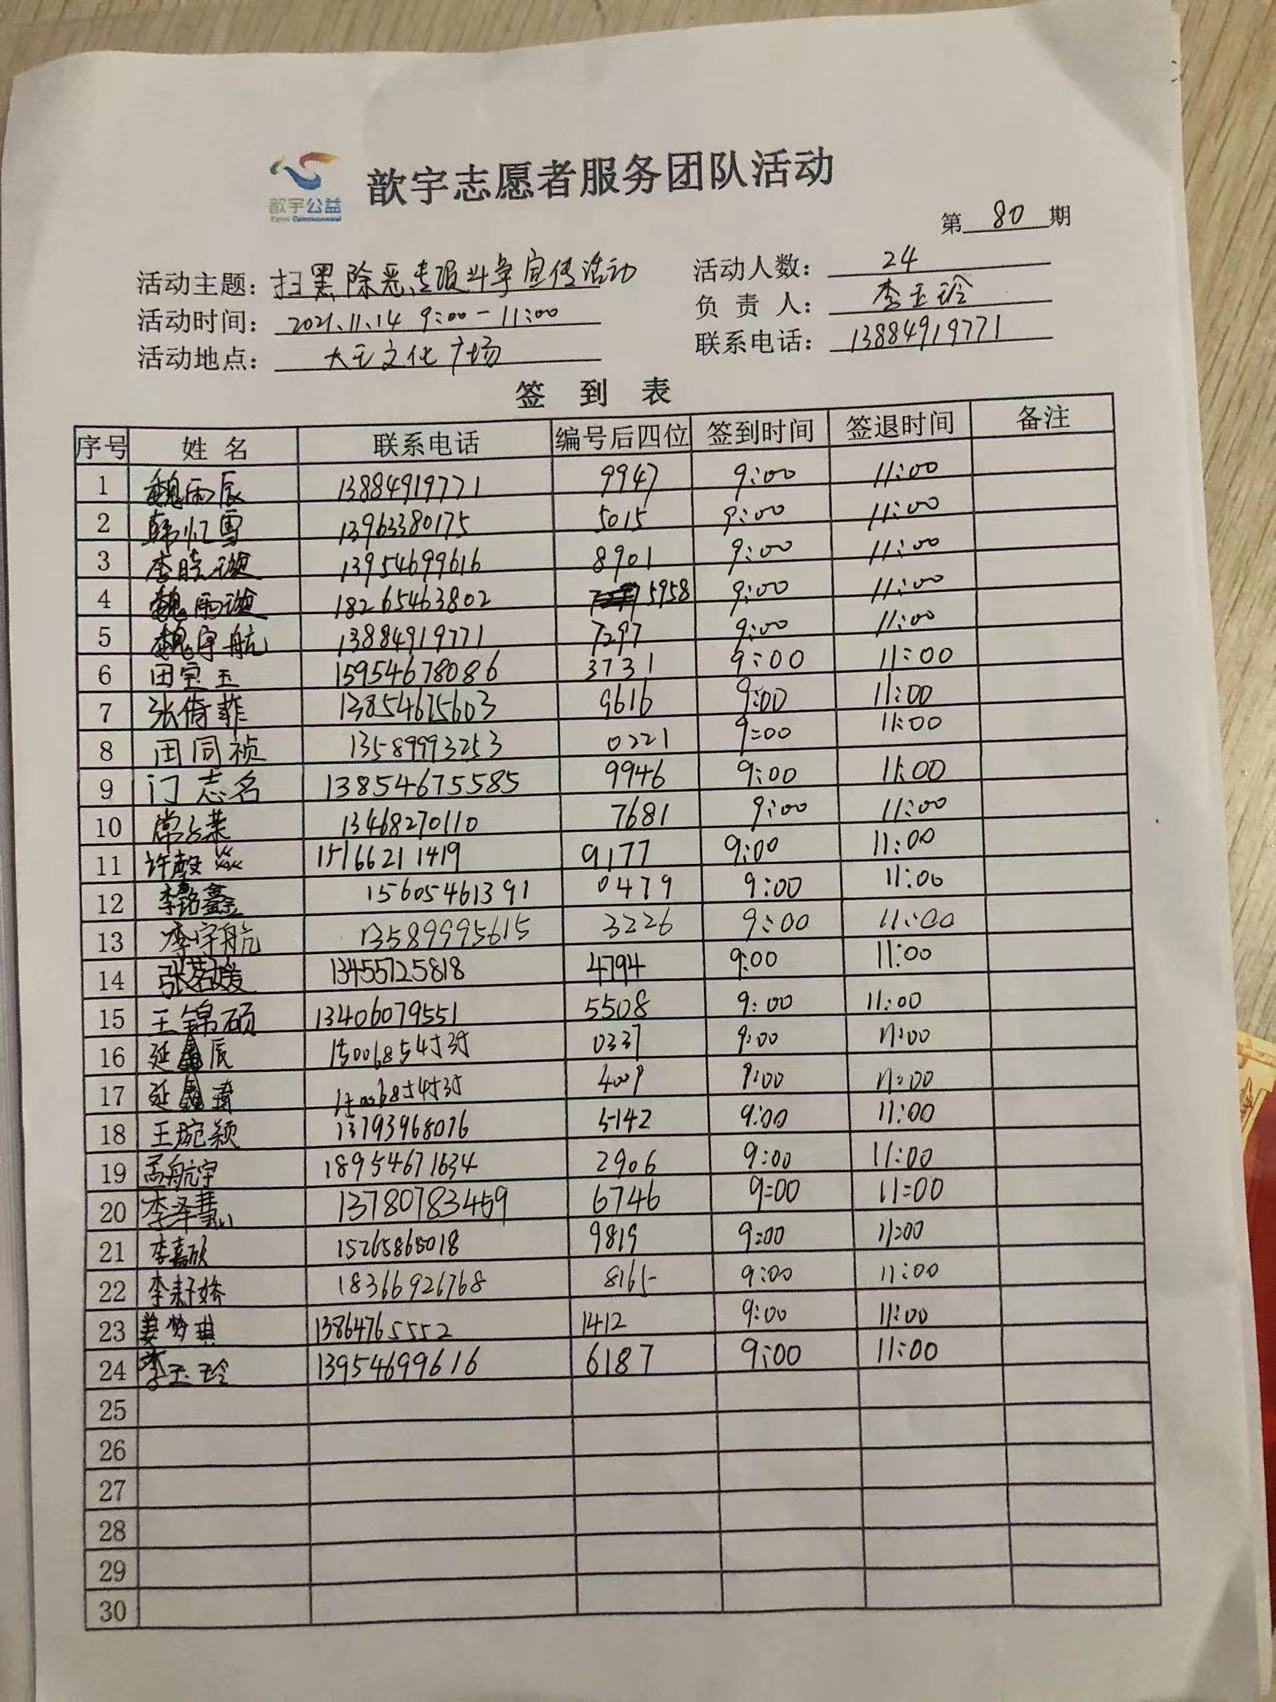 歆宇公益
歆宇志愿者服务团队活动
第 80 期
活动主题：扫黑除恶专项斗争宣传活动 活动人数：24
活动时间：2021.11.14 9:00-11:00 负责人：李玉玲
活动地点：大王文化广场 联系电话：13884919771
签到表
序号 姓名 联系电话 编号后四位 签到时间 签退时间 备注
1 魏雨辰 13884919771 9947 9:00 11:00
2 韩忆雪 13963380175 5015 9:00 11:00
3 李晓璇 13954699616 8901 9:00 11:00
4 魏雨璇 18265463802 5958 9:00 11:00
5 魏宇航 13884919771 7297 9:00 11:00
6 田宝玉 15954678086 3731 9:00 11:00
7 张倚菲 13854675603 9616 9:00 11:00
8 田同祯 13589993253 0221 9:00 11:00
9 门志名 13854675585 9946 9:00 11:00
10 13468270110 7681 9:00 11:00
11 15166211419 9177 9:00 11:00
12 李铭鑫 15605461391 0479 9:00 11:00
13 李宇航 13589995615 3226 9:00 11:00
14 张茗媛 13455725818 4794 9:00 11:00
15 王锦硕 13406079551 5508 9:00 11:00
16 延 辰 0337 9:00 11:00
17 延 4009 9:00 11:00
18 王琬颖 13793968076 5142 9:00 11:00
19 孟航宇 18954671634 2906 9:00 11:00
20 李泽慧 13780783469 6746 9:00 11:00
21 李嘉欣 15265868018 9819 9:00 11:00
22 李 娇 18366926768 8165 9:00 11:00
23 姜梦琪 13864765552 1412 9:00 11:00
24 李玉玲 13954699616 6187 9:00 11:00
25
26
27
28
29
30